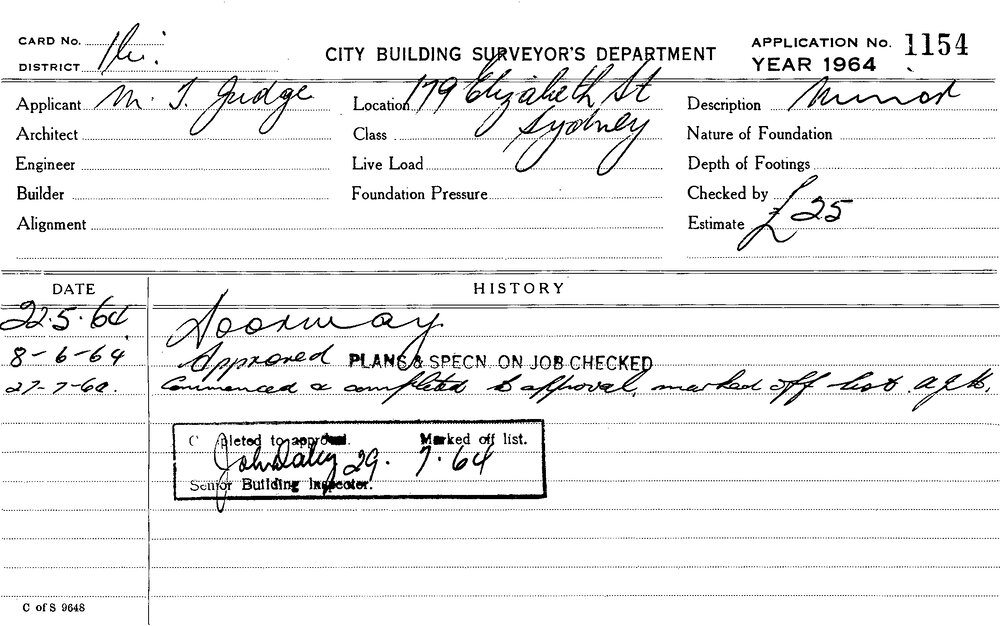 CARD No.
CITY BUILDING SURVEYOR'S DEPARTMENT
APPLICATION No. 1154
DISTRICT
YEAR 1964
Applicant M. J. Judge
Location 179 Elizabeth St
Sydney
Description Minor
Architect
Class
Nature of Foundation
Engineer
Live Load
Depth of Footings
Builder
Foundation Pressure
Checked by
Alignment
Estimate £25
DATE HISTORY
22.5.64 Doorway
8-6-64 Approved PLANS & SPECN. ON JOB CHECKED
27-7-64. Commenced & completed to approval, marked off list
C pleted to approval. Marked off list.
John Daley 29. 7. 64
Senior Building Inspector.
C of S 9648